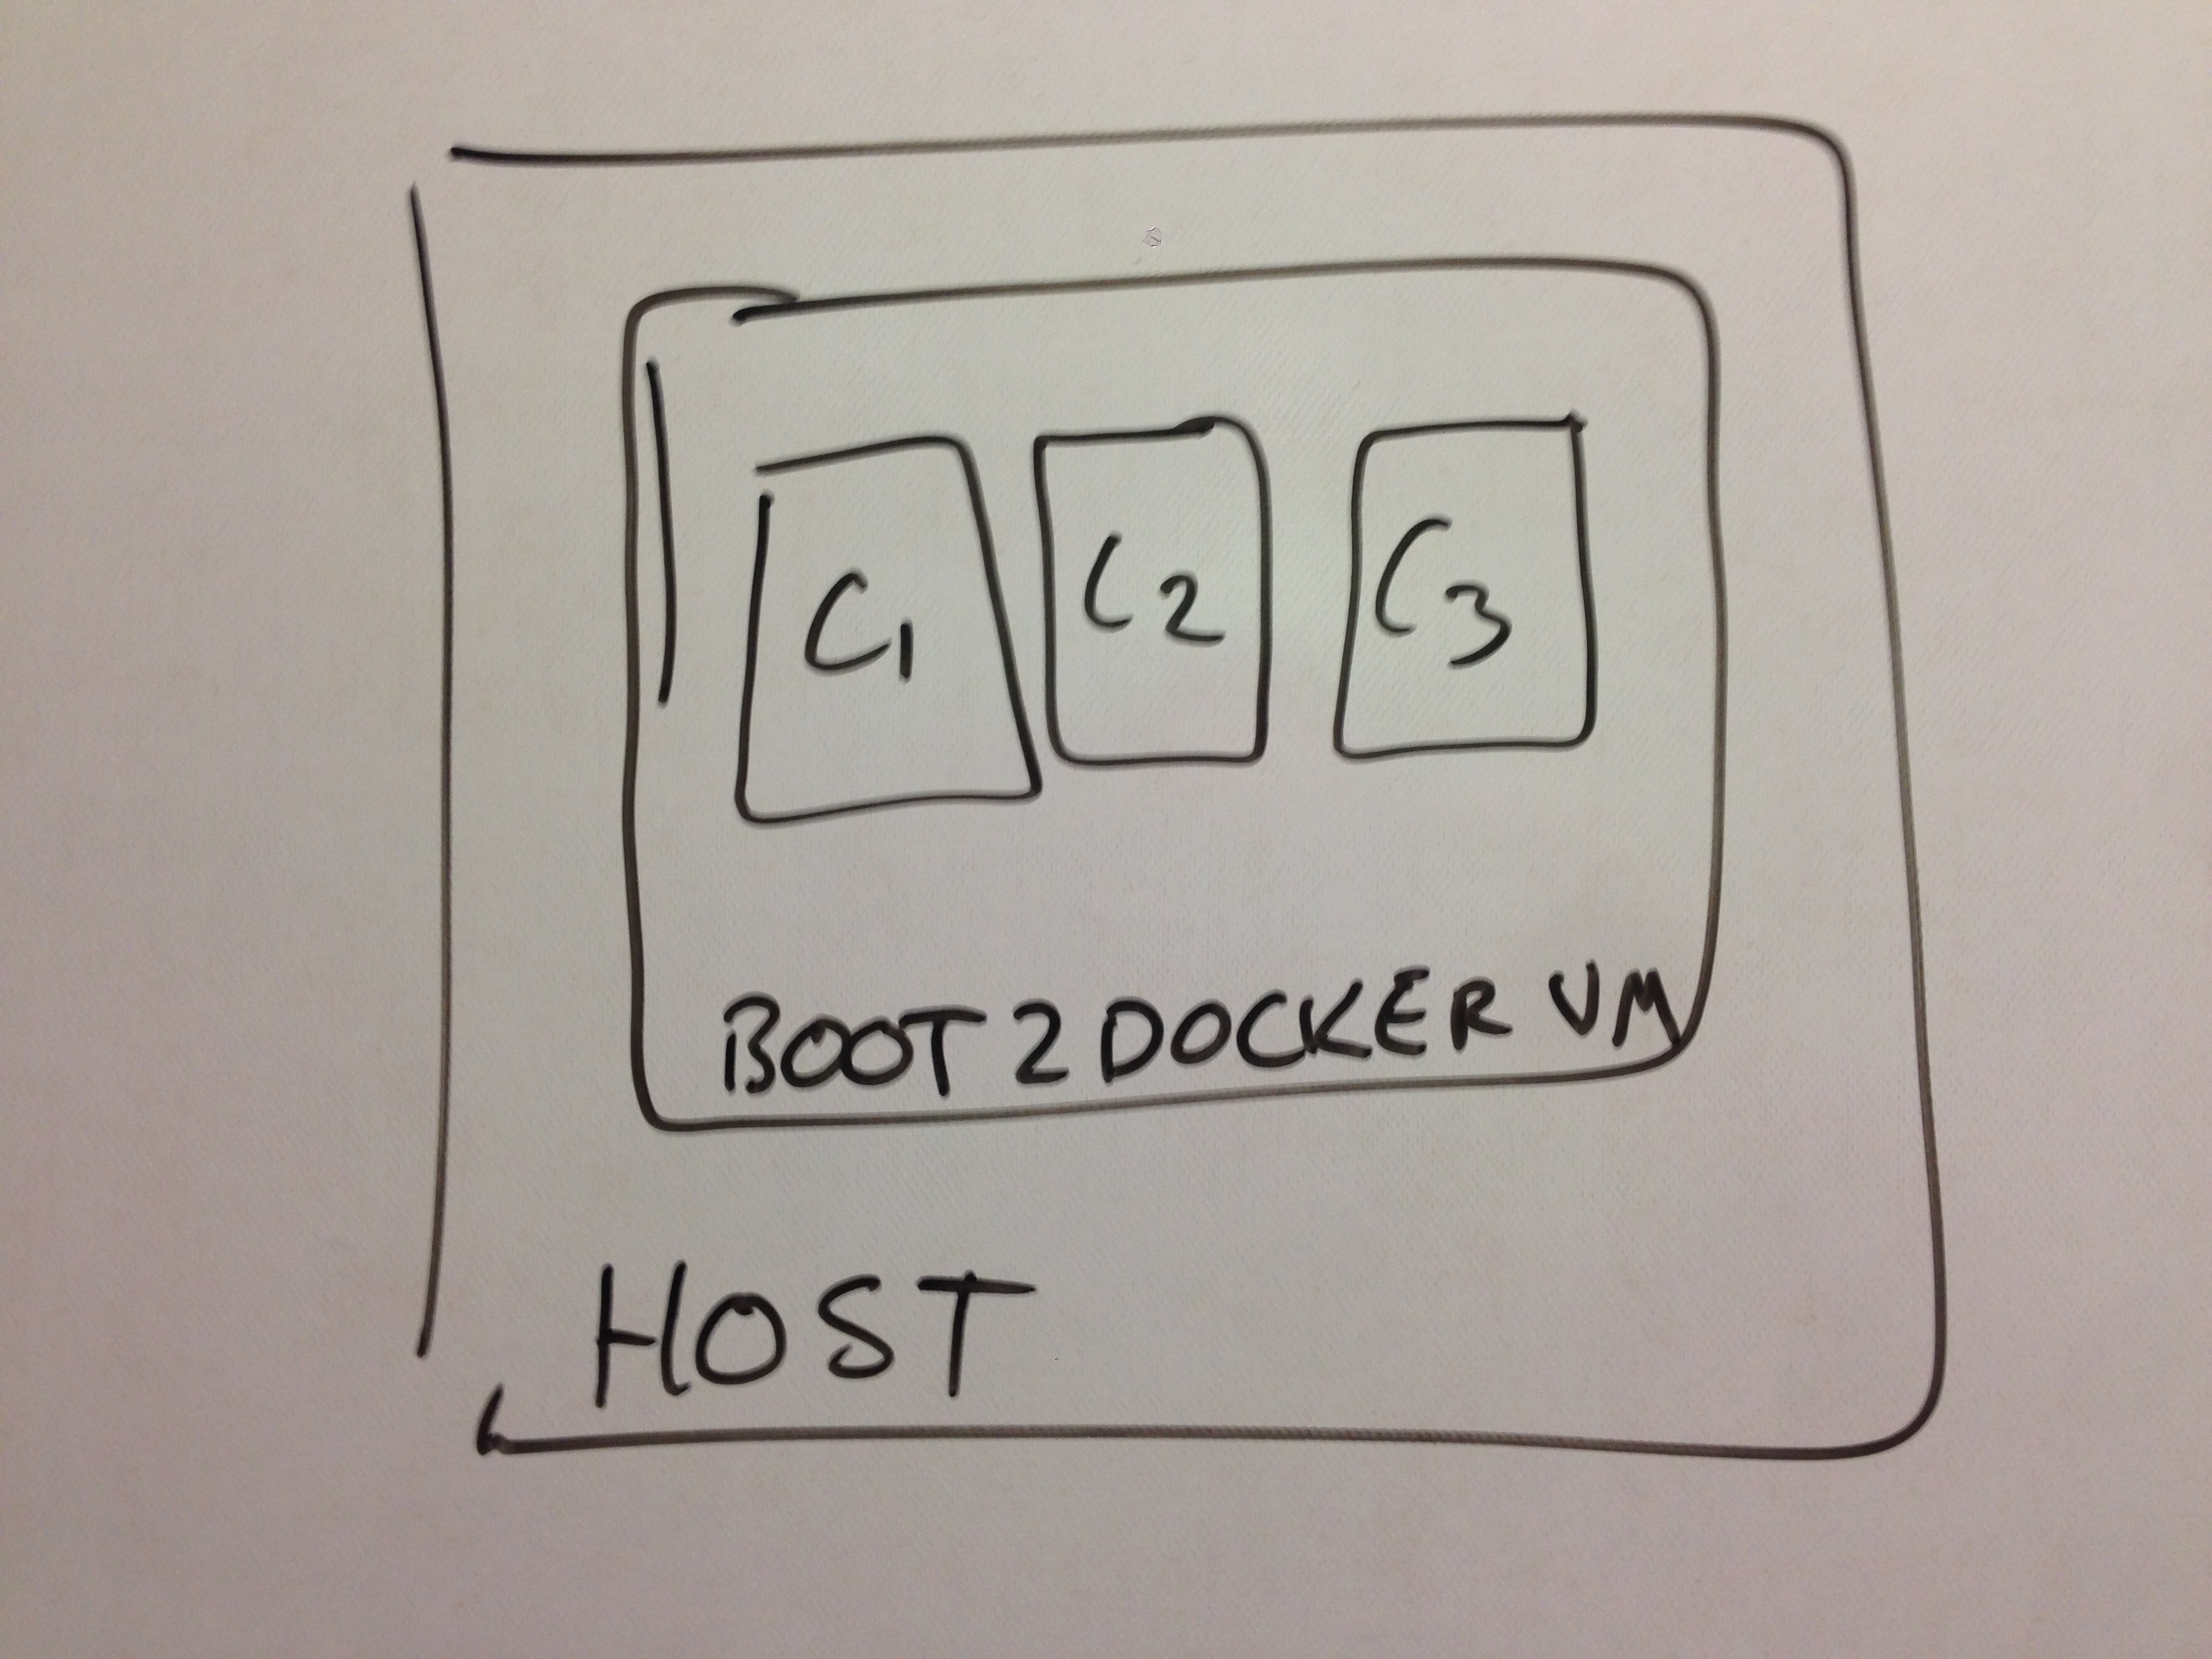 C1 C2 C3
BOOT 2 DOCKER VM
HOST